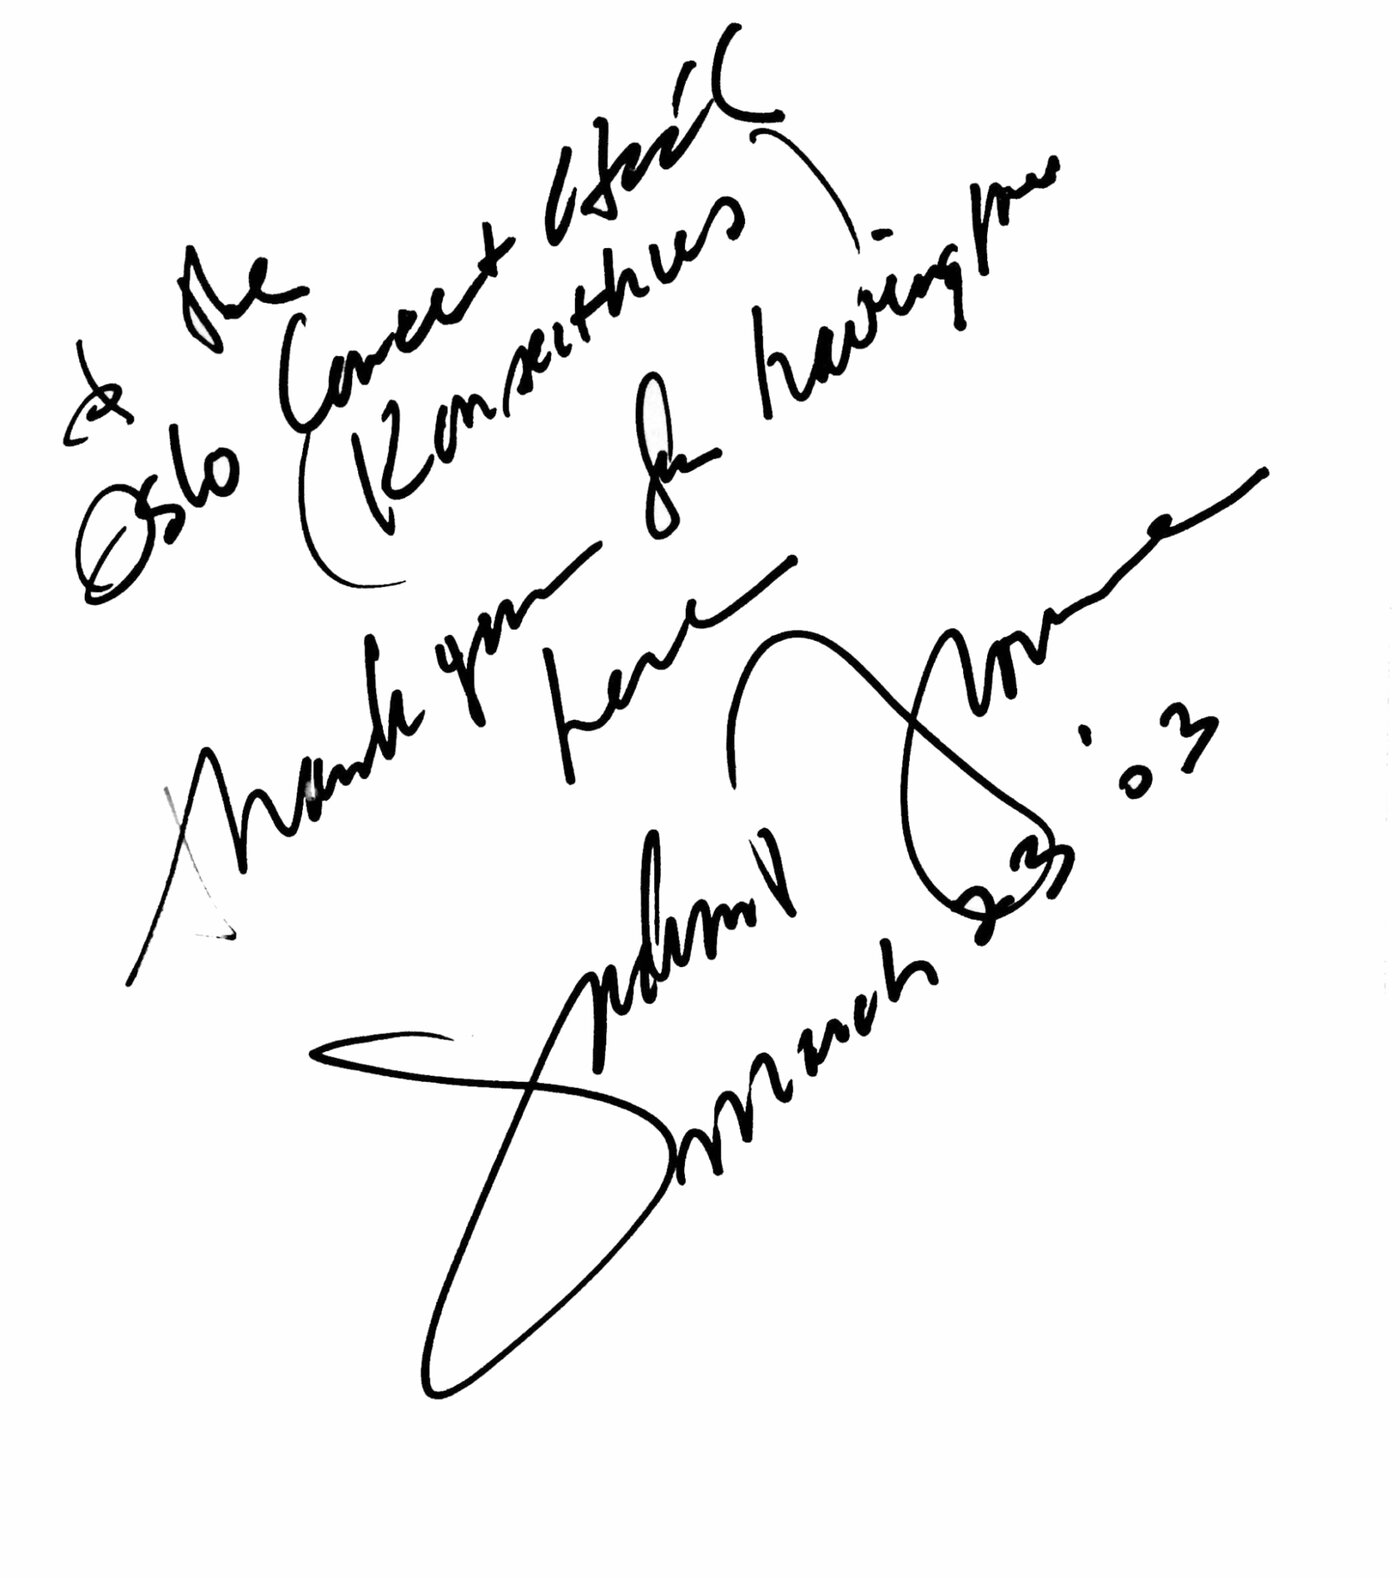 to the
Oslo Concert Hall
(Konserthus)
Thank you for having me
here
March 23 '03